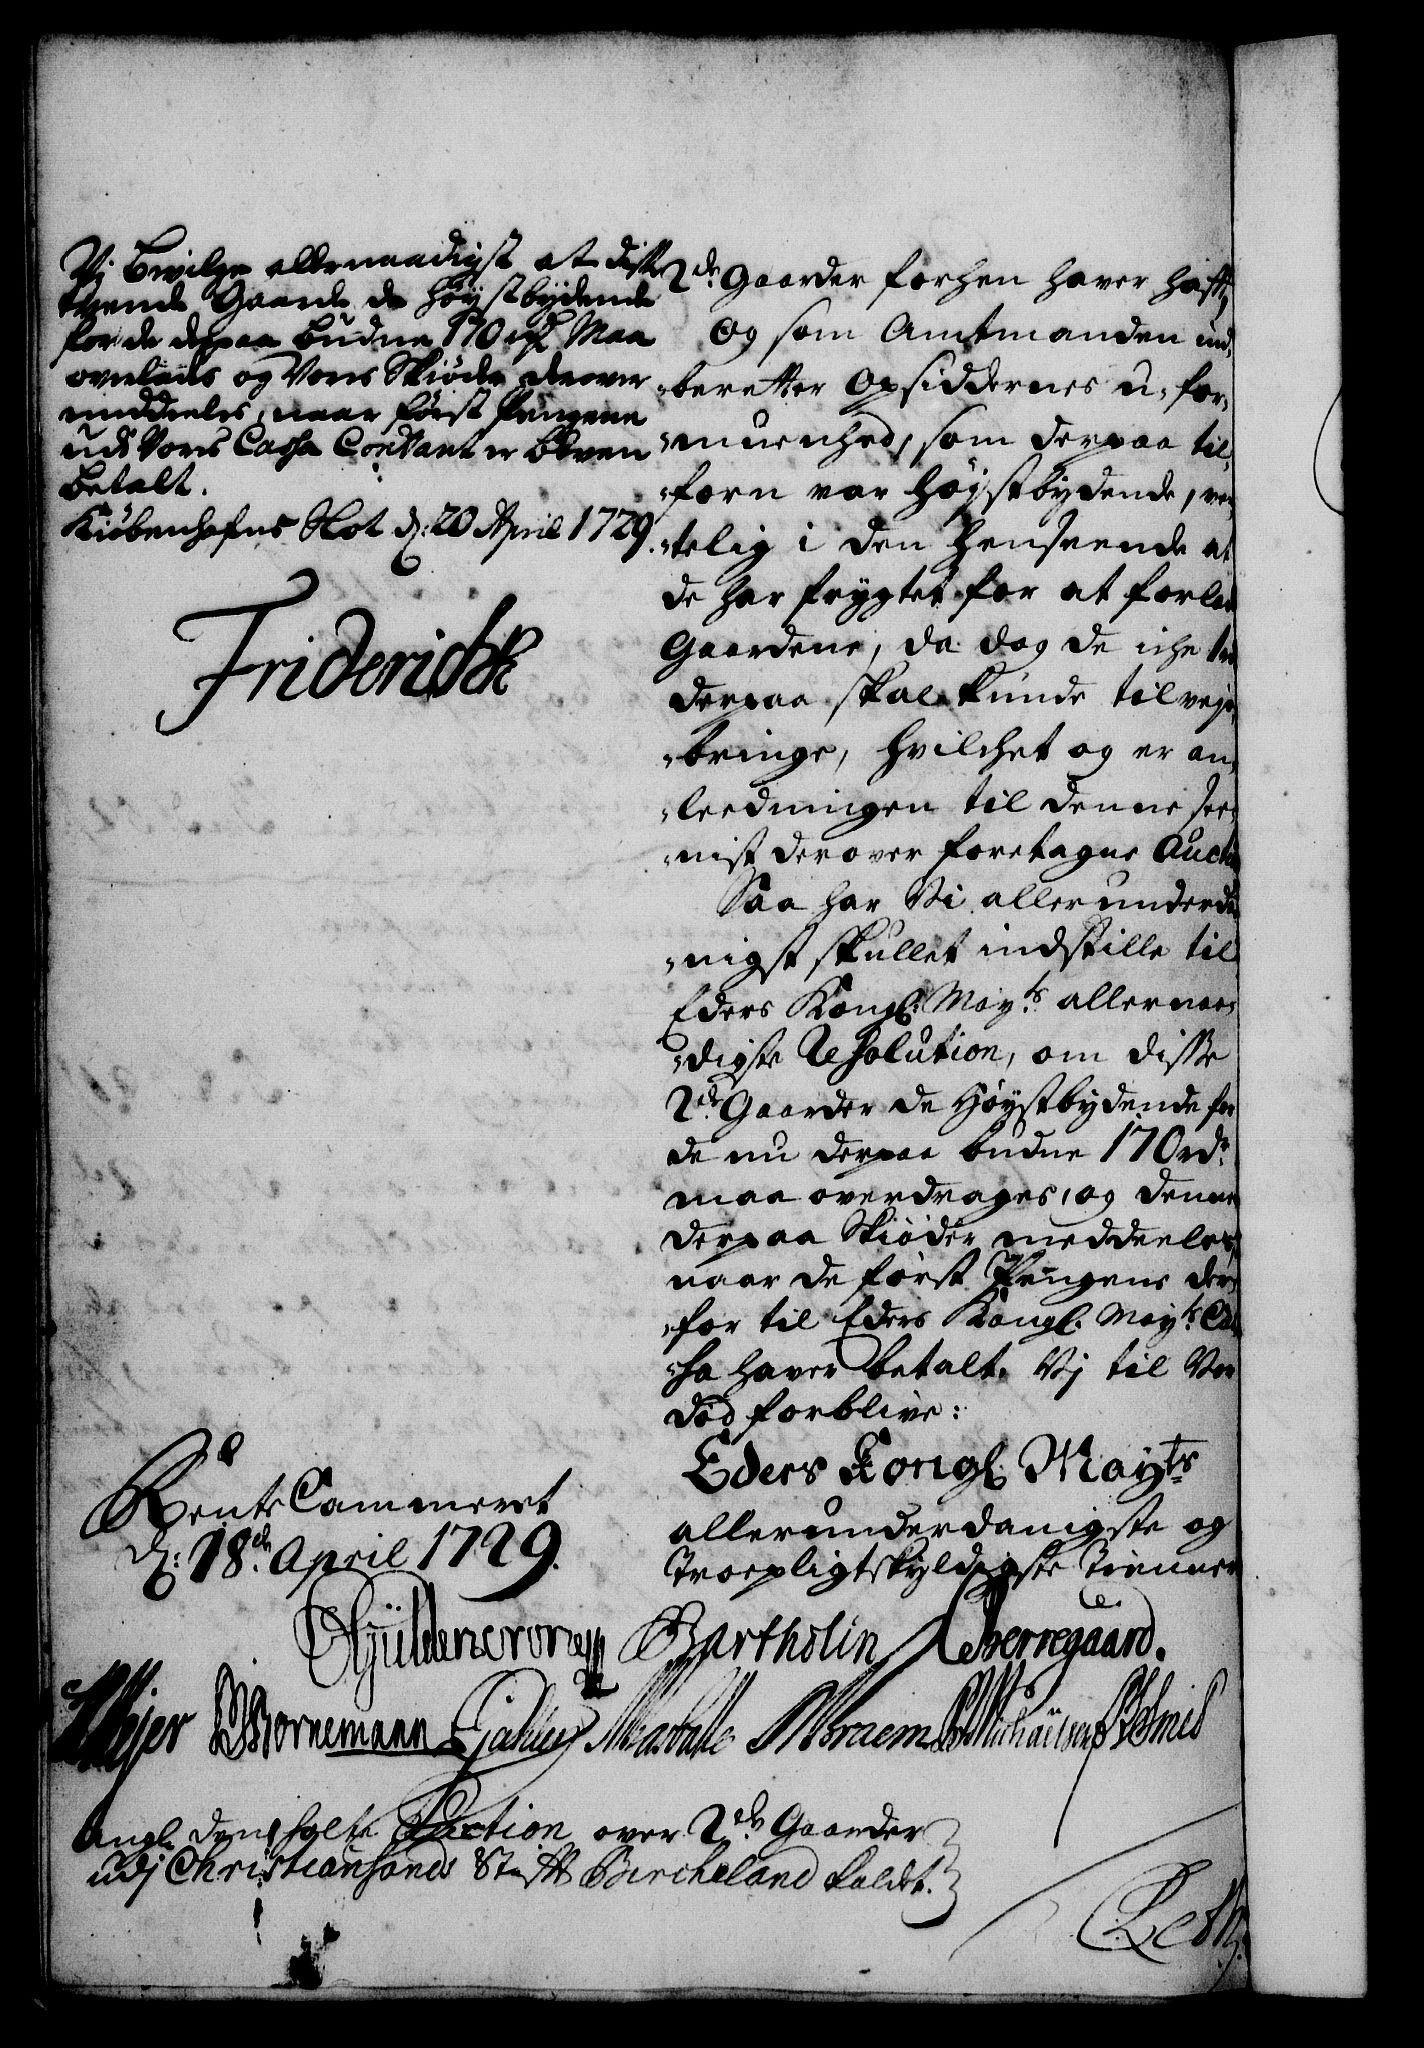 Vi Bevilge allernaadigst at disse
tvende Gaarde de Høystbydende
for de derpaa budne 170 rdr Maa
overlades og Vores Skiøde derover
meddeeles, naar først Pengene
udi Vores Cassa Contant er bleven
betalt.
Kiøbenhafns Slot d: 20 April 1729.
Friderich R
2de Gaarder forhen haver hafft,
Og som Amtmanden ind¬
beretter Opsiddernes u-for¬
muenhed, som derpaa til¬
forn var høystbydende,
telig i den henseende at
de har frygtet for at forlade
Gaardene, da dog de iche
derpaa skal kunde tilveje
bringe, hvilchet og er an¬
leedningen til denne see¬
nist derover foretagne Auction
Saa har Vi allerunderda
nigst skullet indstille til
Eders Kongl. Mayts allernaa
digste Resolution, om disse
2de Gaarder de Høystbydende for
de nu derpaa budne 170 rdr
maa overdrages, og dennem
derpaa Skiøder meddeeles,
naar de først Pengene der
for til Eders Kongl. Mayts Cas
sa haver betalt. Vj til Vor
død forblive:
Eders Kongl. Mayts
allerunderdanigste og
Troepligtskyldigste Tienner
Rente Cammeret
d: 18de April 1729.
Güldencrone Bartholin Berregaard.
Meyer Bornemann
Angl. den holte Auction over 2de Gaarder
udj Christiansands Stifft Bircheland kaldet.